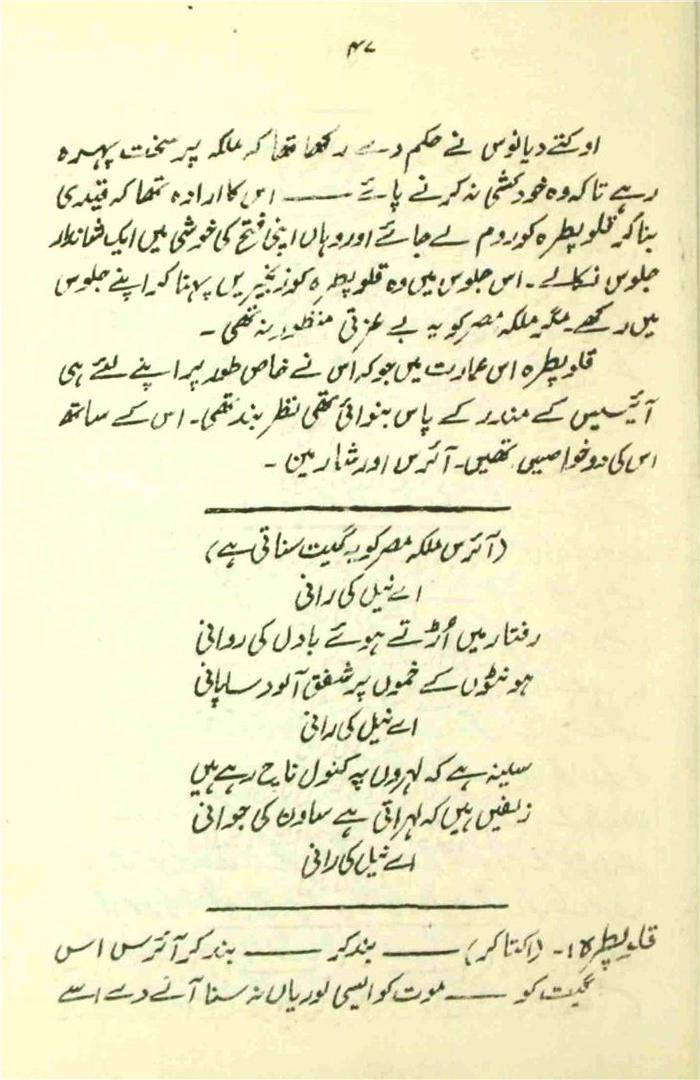 ۴۷
اوکتے دیانوس نے حکم دے رکھا تھا کہ ملکہ پر سخت پہرہ
رہے تاکہ وہ خودکشی نہ کرنے پائے ــــــ اس کا ارادہ تھا کہ قیدی
بنا کر قلوپطرہ کو روم لے جائے اور وہاں اپنی فتح کی خوشی میں ایک شاندار
جلوس نکالے۔ اس جلوس میں وہ قلوپطرہ کو زنجیریں پہنا کر اپنے جلوس
میں رکھے۔ مگر ملکہ مصر کو یہ بے عزتی منظور نہ تھی ۔
قلوپطرہ اس عمارت میں جو کہ اس نے خاص طور پر اپنے لئے ہی
آئیسس کے مندر کے پاس بنوائی تھی نظر بند تھی۔ اس کے ساتھ
اس کی دو خواصیں تھیں۔ آئرس اور شارمین ۔
(آئرس ملکہ مصر کو یہ گیت سناتی ہے)
اے نیل کی رانی
رفتار میں اُڑتے ہوئے بادل کی روانی
ہونٹوں کے خموں پر شفق آلود سا پانی
اے نیل کی رانی
سینہ ہے کہ لہروں پہ کنول ناچ رہے ہیں
زلفیں ہیں کہ لہراتی ہے ساون کی جوانی
اے نیل کی رانی
قلوپطرہ :۔ (اکتا کر) ــــــ بند کر ــــــ بند کر آئرس اس
گیت کو ــــــ موت کو ایسی لوریاں نہ سنا آنے دے اسے